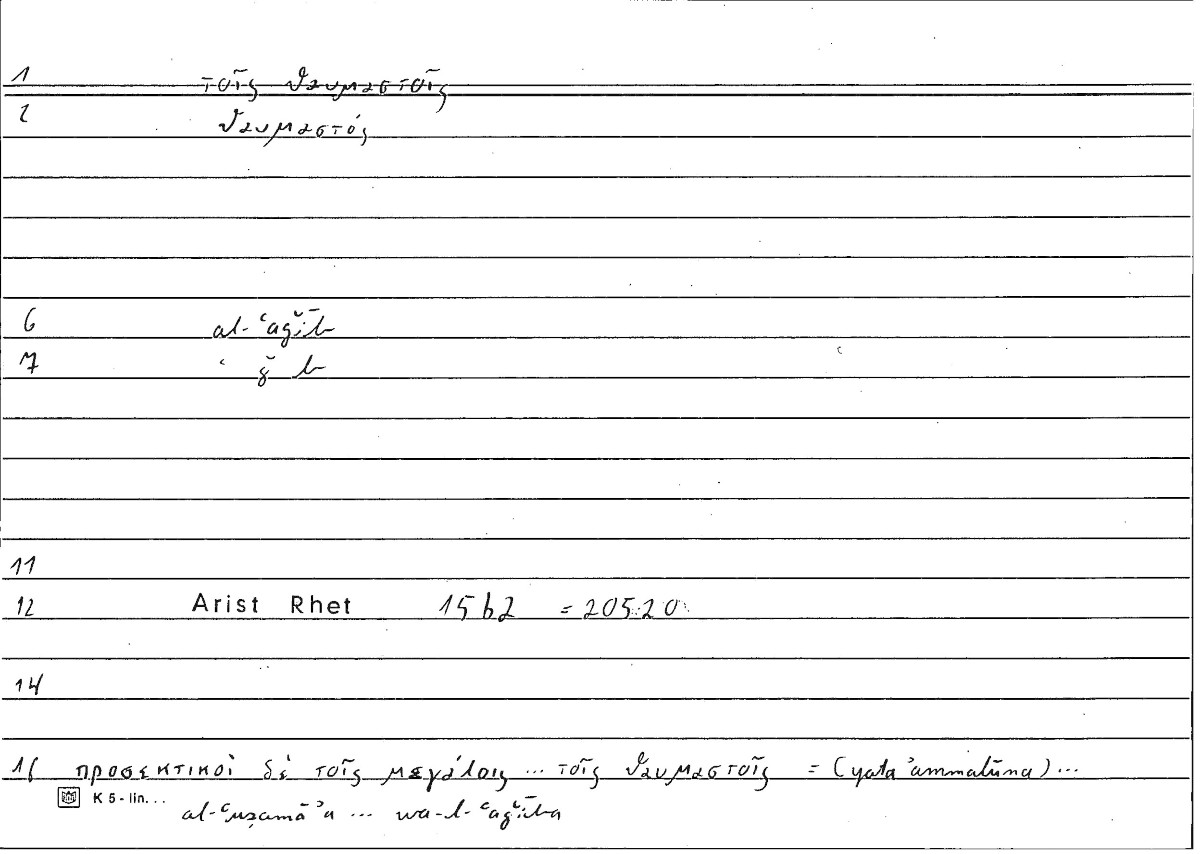 1 τοῖς θαυμαστοῖς
2 θαυμαστός
6 al-ʿaǧīb
7 ʿ ǧ b
11
12 Arist Rhet 15b2 = 205:20
14
16 προσεκτικοὶ δὲ τοῖς μεγάλοις ... τοῖς θαυμαστοῖς = (yataʾammalūna) ...
K 5 - lin...
al-ʿuẓamāʾa ... wa-l-ʿaǧība